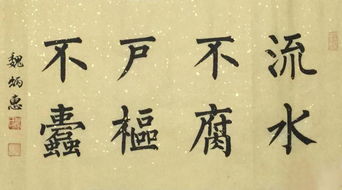 流水
不腐
戶樞
不蠹
魏炳惠